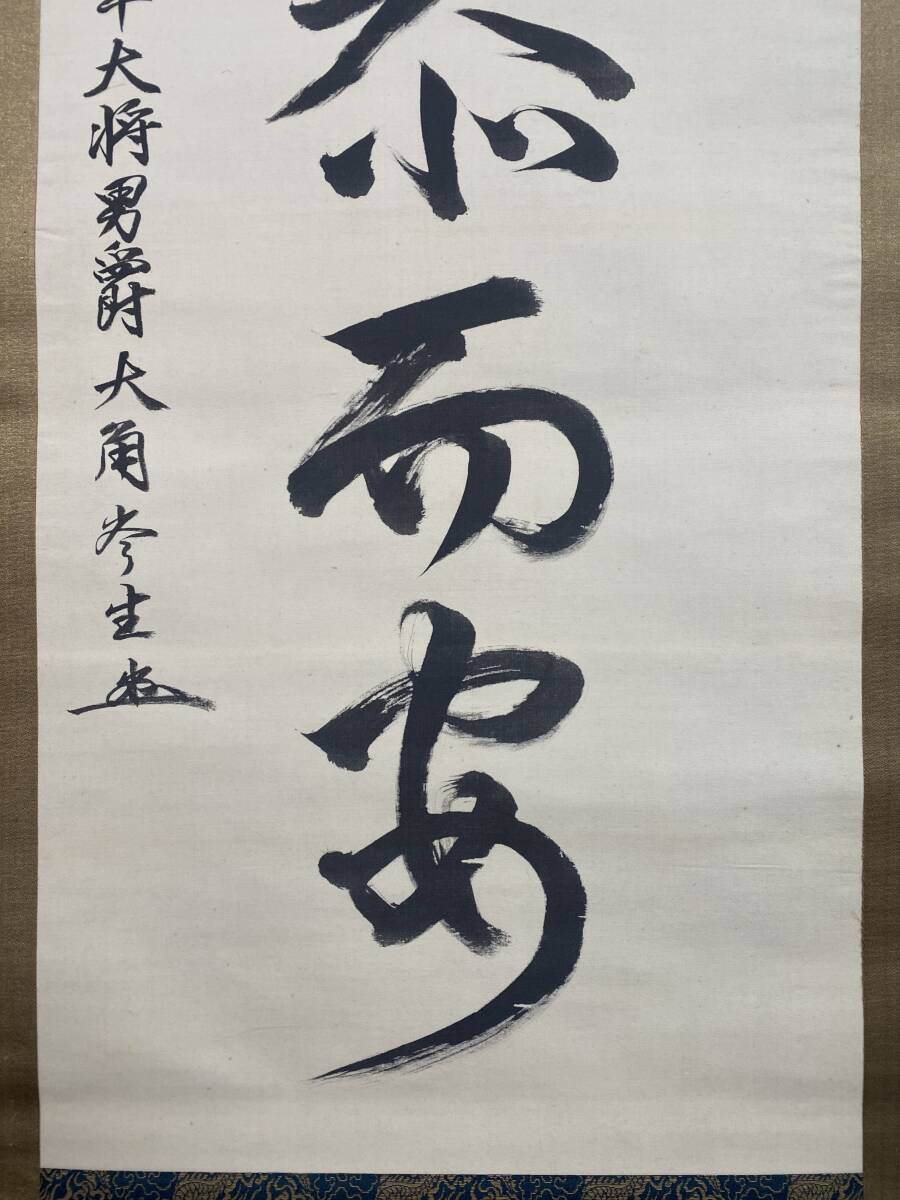 恭而安
軍大将男爵大角岑生書